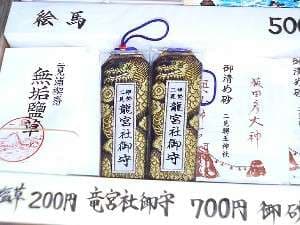 絵馬
500
二見浦名物
無垢鹽草
伊勢
二見
龍宮社御守
伊勢
二見
龍宮社御守
御清め砂
二見興玉神社
猿田彦大神
塩草 200円 竜宮社御守 700円 御砂